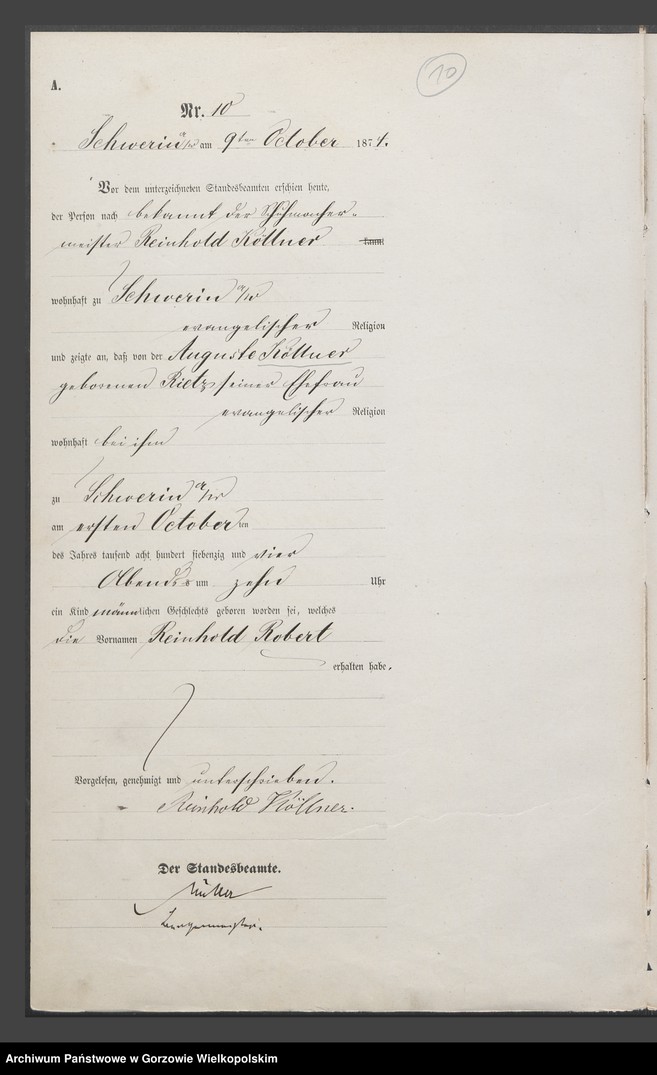 10
A.
Nr. 10
Schwerin a/w am 9ten October 1874.
Vor dem unterzeichneten Standesbeamten erschien heute,
der Person nach bekannt, der Schuhmacher-
meister Reinhold Köllner kannt
wohnhaft zu Schwerin a/w
evangelischer Religion
und zeigte an, daß von der Auguste Köllner
geborenen Rietz seiner Ehefrau
evangelischer Religion
wohnhaft bei ihm
zu Schwerin a/w
am ersten October ten
des Jahres tausend acht hundert siebenzig und vier
Abends um zehn Uhr
ein Kind männlichen Geschlechts geboren worden sei, welches
die Vornamen Reinhold Robert
erhalten habe.
Vorgelesen, genehmigt und unterschrieben.
Reinhold Köllner.
Der Standesbeamte.
Müller
Bürgermeister.
Archiwum Państwowe w Gorzowie Wielkopolskim